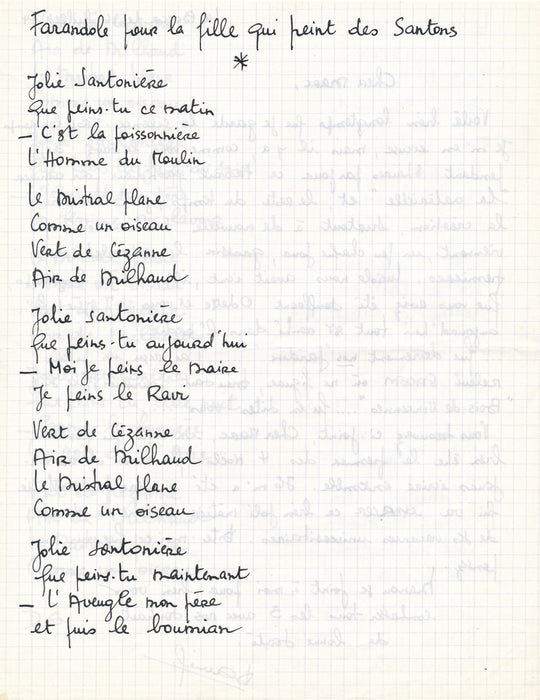 Farandole pour la fille qui peint des Santons
*
Jolie Santonière
Que peins-tu ce matin
— C'est la poissonnière
L'Homme du Moulin
Le Mistral plane
Comme un oiseau
Vert de Cézanne
Air de Milhaud
Jolie santonière
Que peins-tu aujourd'hui
— Moi je peins le Maire
Je peins le Ravi
Vert de Cézanne
Air de Milhaud
Le Mistral plane
Comme un oiseau
Jolie santonière
Que peins-tu maintenant
— L'Aveugle mon père
et puis le boumian